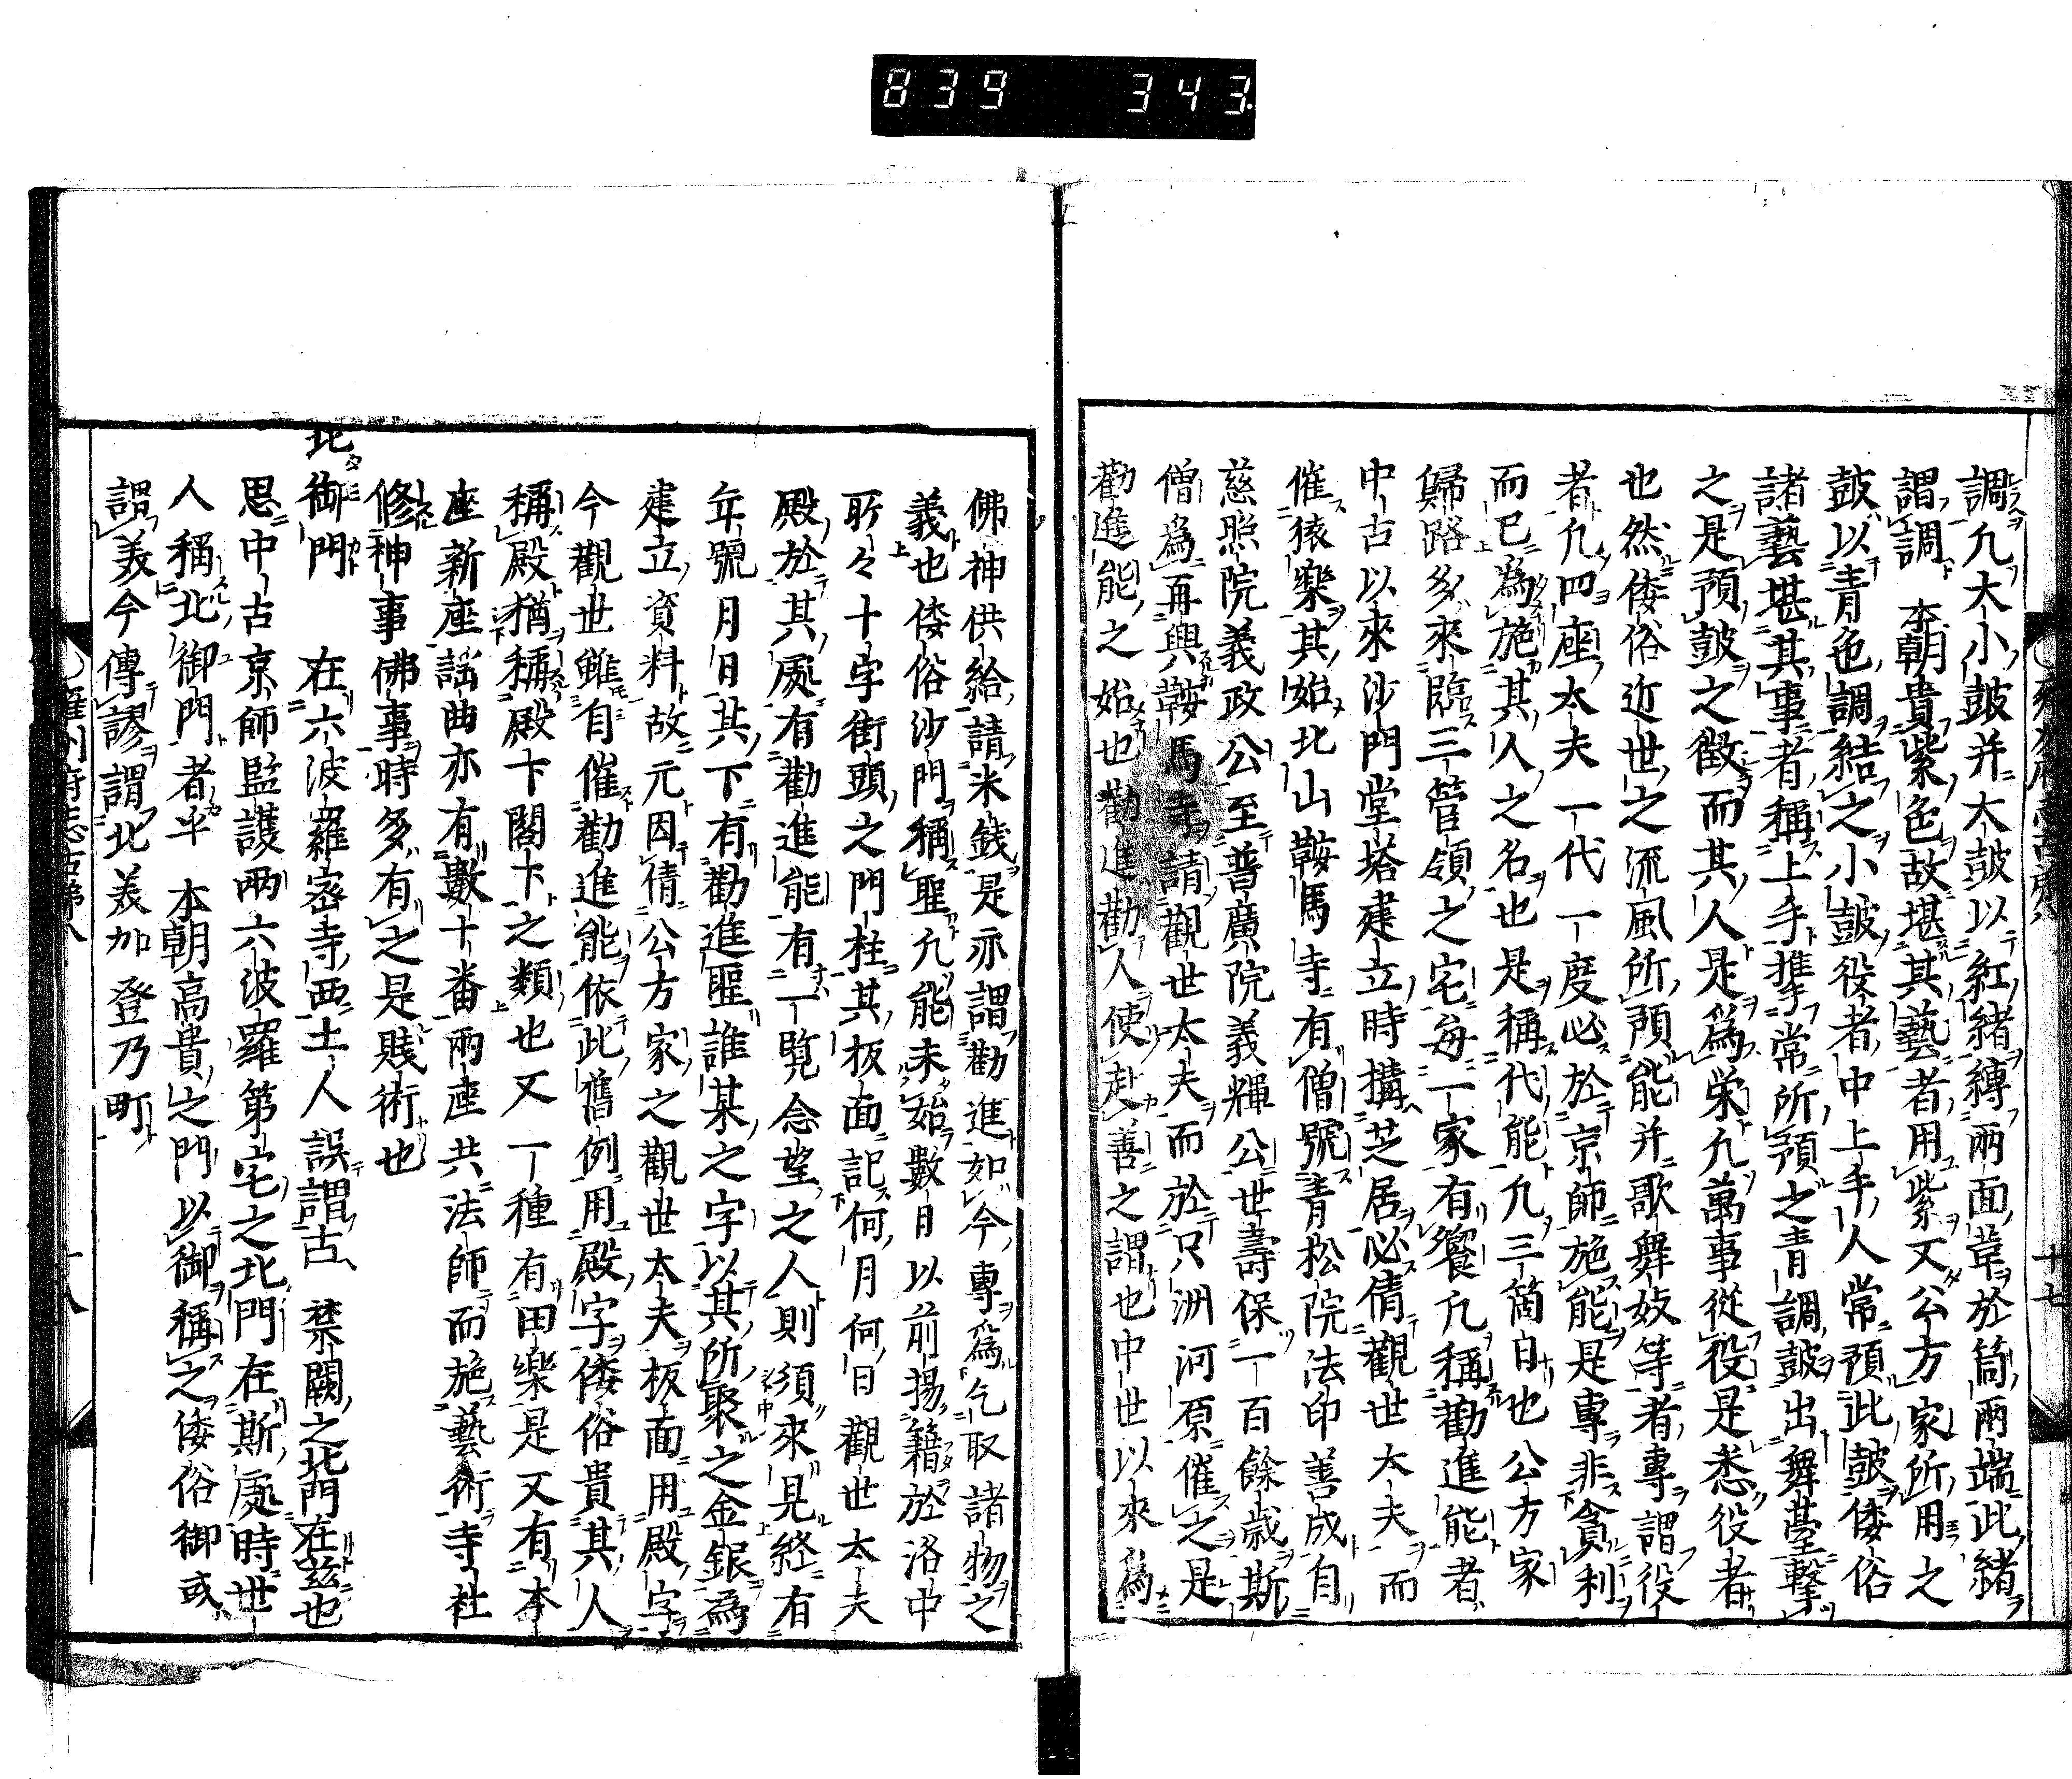 839 343
調凢大小鼓并大鼓以紅緒縛兩面韋於筒兩端此緒
謂調 本朝貴紫色故堪其藝者用紫又公方家所用之
鼓以青色調結之小鼓役者中上手人常預此鼓倭俗
諸藝堪其事者稱上手推手常所預之青調鼓出舞臺擊
之是預鼓之徵而其人是爲栄凢萬事從役是悉役者
也然倭俗近世之流風所預能并歌舞妓等者專謂役
者凢四座太夫一代一度必於京師施能是專非貪利
而已爲施其人之名也是稱代能凢三箇日也公方家
歸路多來臨三管領之宅每一家有饗凢稱勸進能者
中古以來沙門堂塔建立時搆芝居必倩觀世大夫而
催猿樂其始北山鞍馬寺有僧號青松院法印善成自
慈照院義政公至普廣院義輝公世壽保一百餘歲斯
僧爲再興鞍馬寺請觀世太夫而於只洲河原催之是
勸進能之始也勸進勸人使赴善之謂也中世以來爲
十七
佛神供給請米錢是亦謂勸進如今專爲乞取諸物之
義也倭俗沙門稱聖凢能未始數日以前揚籍於洛中
所々十字街頭之門柱其板面記何月何日觀世太夫
殿於其處有勸進能有一覽念望之人則須來見終有
年號月日其下有勸進聖誰某之字以其所聚之金銀爲
建立資料故元因倩公方家之觀世太夫板面用殿字
今觀世雖自催勸進能依此舊例用殿字倭俗貴其人
稱殿猶稱殿下閣下之類也又一種有田樂是又有本
座新座謡曲亦有數十番兩座共法師而施藝術寺社
修神事佛事時多有之是賤術也
北御門 在六波羅密寺西土人誤謂古 禁闕之北門在茲也
思中古京師監護兩六波羅第宅之北門在斯處時世
人稱北御門者乎 本朝高貴之門以御稱之倭俗御或
謂義今傳謬謂北義加登乃町
雍州府志古蹟八
十八